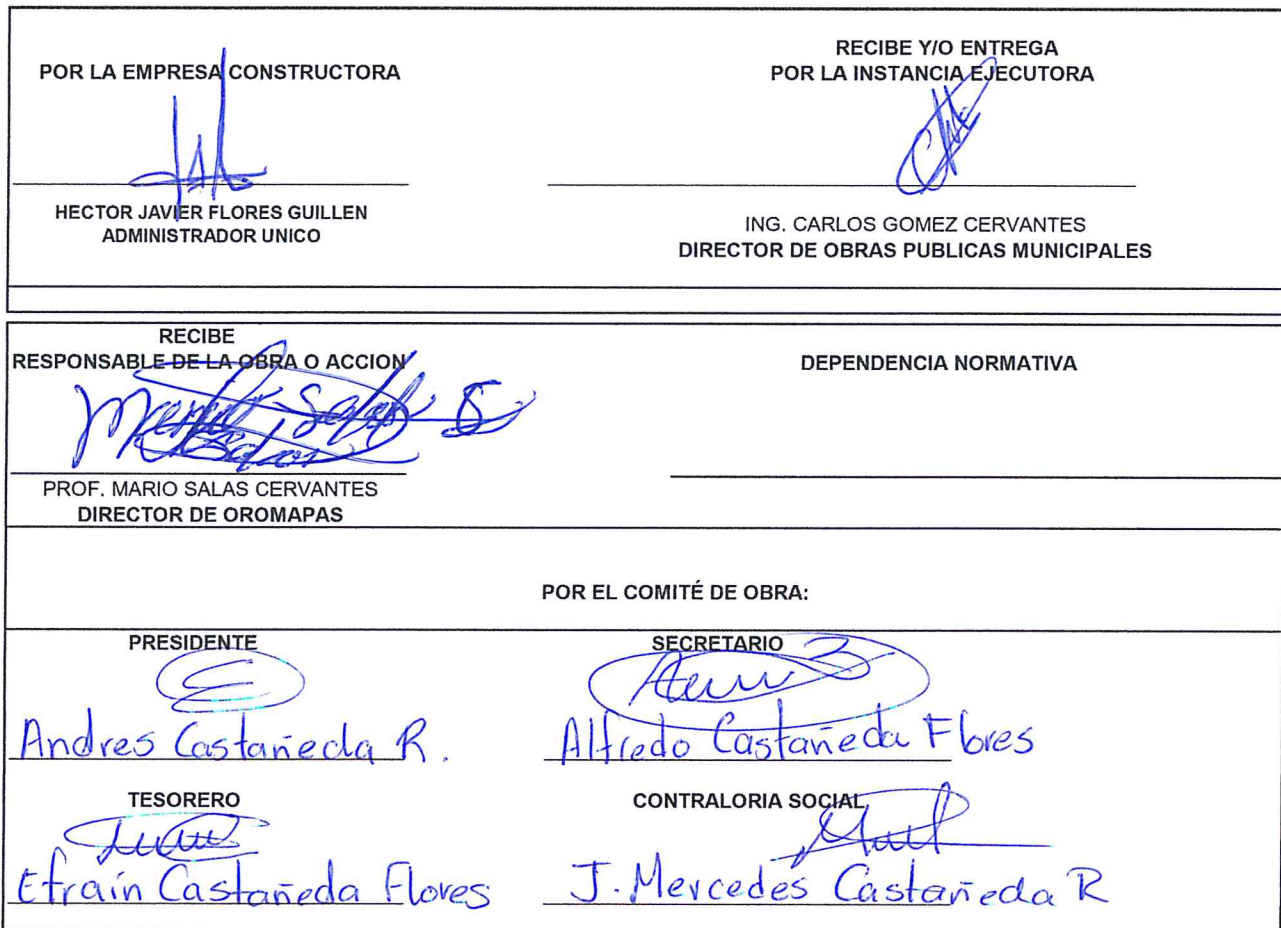 POR LA EMPRESA CONSTRUCTORA
HECTOR JAVIER FLORES GUILLEN
ADMINISTRADOR UNICO
RECIBE Y/O ENTREGA
POR LA INSTANCIA EJECUTORA
ING. CARLOS GOMEZ CERVANTES
DIRECTOR DE OBRAS PUBLICAS MUNICIPALES
RECIBE
RESPONSABLE DE LA OBRA O ACCION
PROF. MARIO SALAS CERVANTES
DIRECTOR DE OROMAPAS
DEPENDENCIA NORMATIVA
POR EL COMITÉ DE OBRA:
PRESIDENTE
Andres Castañeda R.
SECRETARIO
Alfredo Castañeda Flores
TESORERO
Efraín Castañeda Flores
CONTRALORIA SOCIAL
J. Mercedes Castañeda R